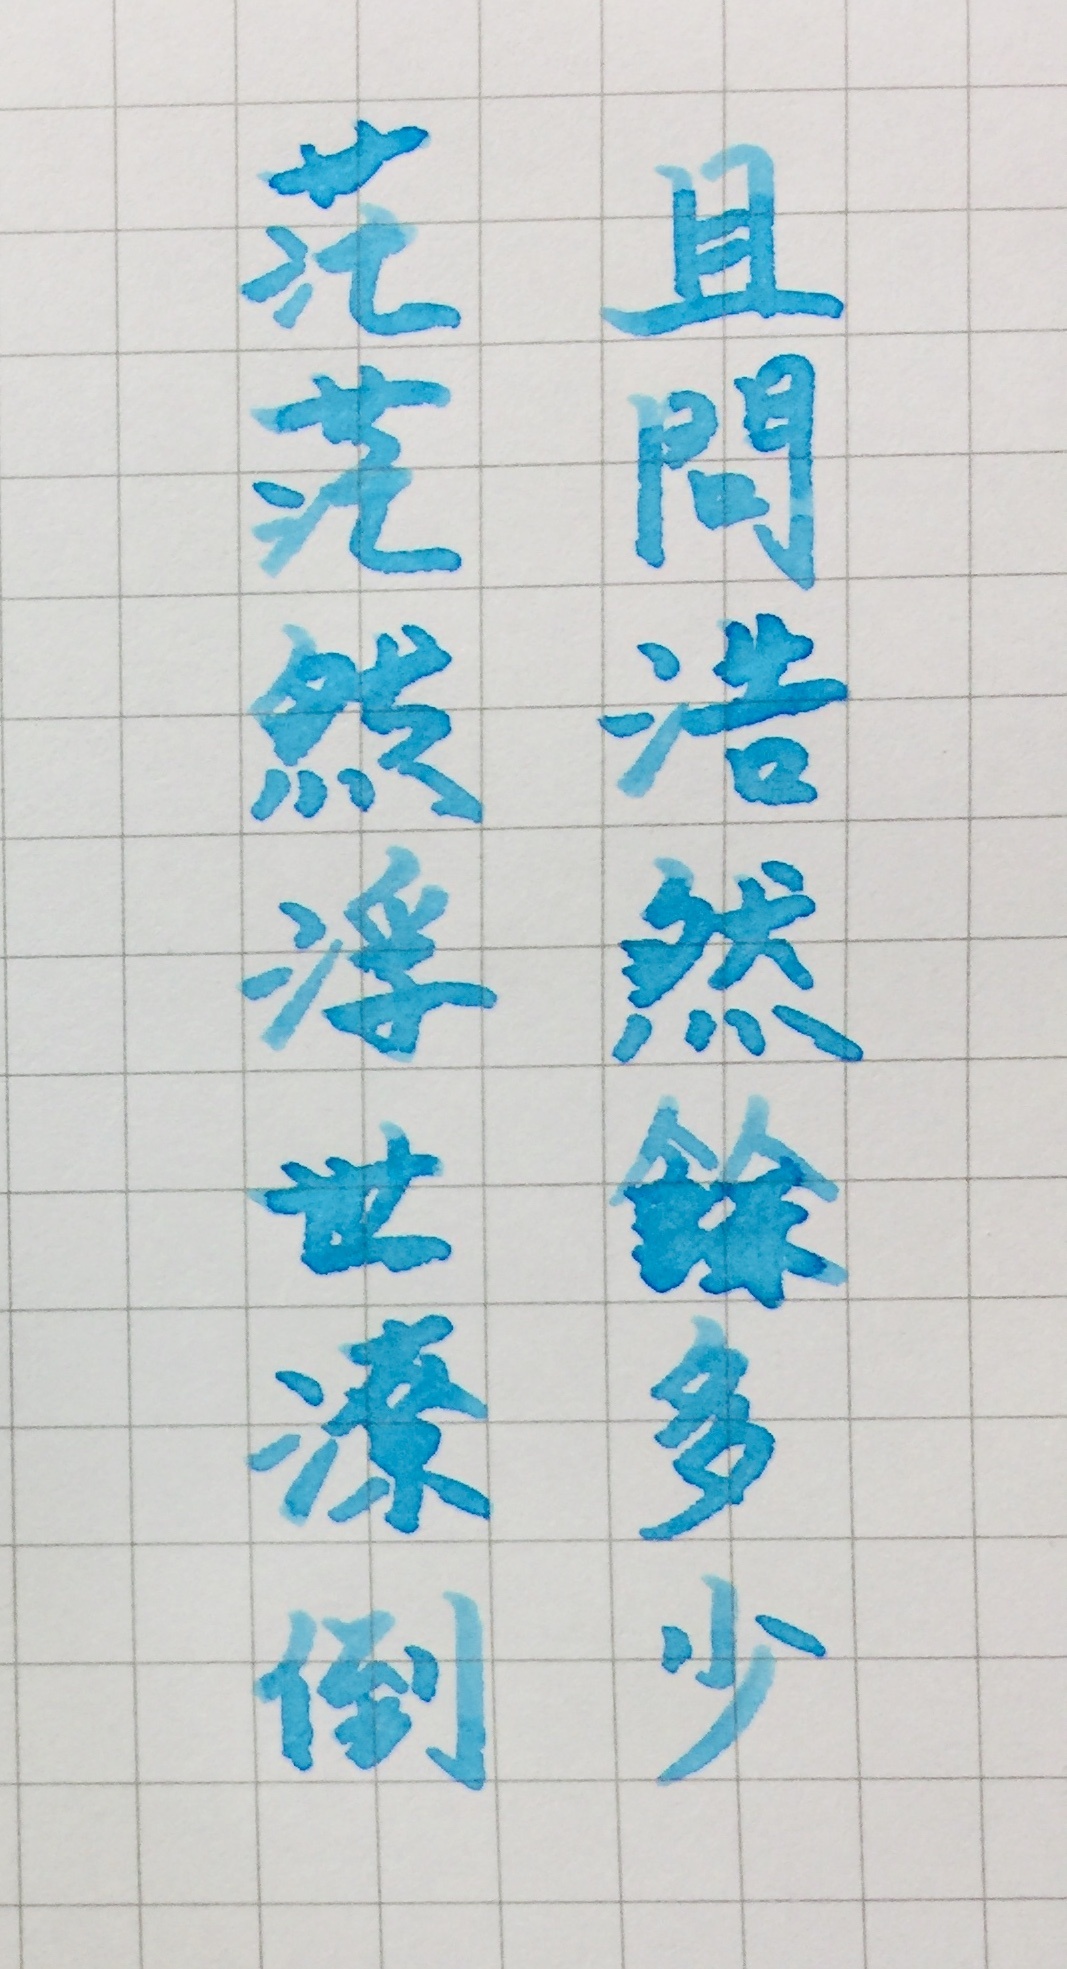 且問浩然餘多少
茫茫然浮世潦倒